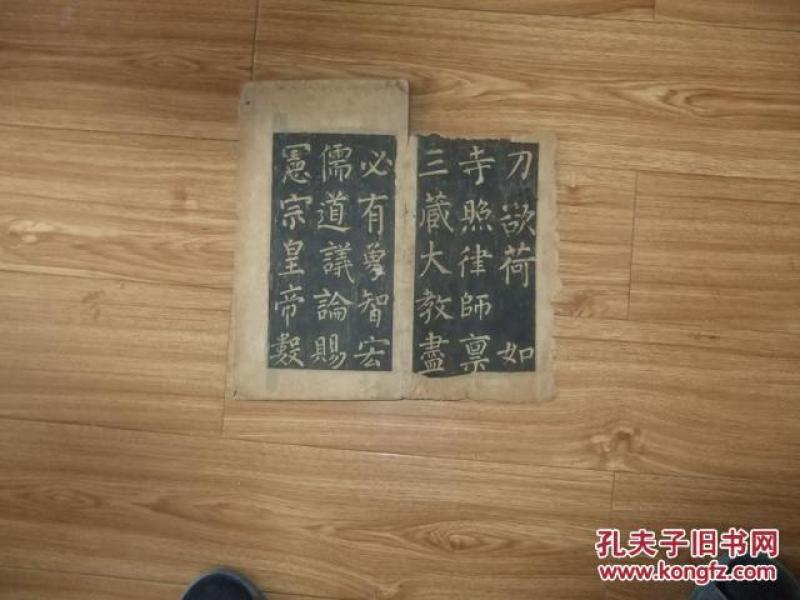 刀欲荷 如
寺照律師禀
三藏大教盡
必有勇智宏
儒道議論賜
憲宗皇帝數
孔夫子旧书网
www.kongfz.com